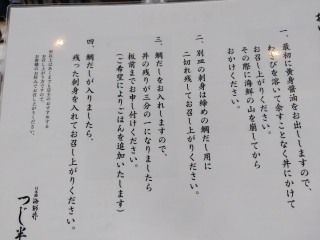 一、最初に黄身醤油をお出ししますので、
わさびを溶いて余すことなく丼にかけて
お召し上がりください。
その際に海鮮の山を崩してから
おかけください。
二、別皿の刺身は締めの鯛だし用に
二切れ残してお召し上がりください。
三、鯛だしをお入れしますので、
丼の残りが三分の一になりましたら
板前までお申し付けください。
（ご希望によりごはんを追加いたします）
四、鯛だしが入りましたら、
残った刺身を入れてお召し上がりください。
日本橋 海鮮丼
つじ半